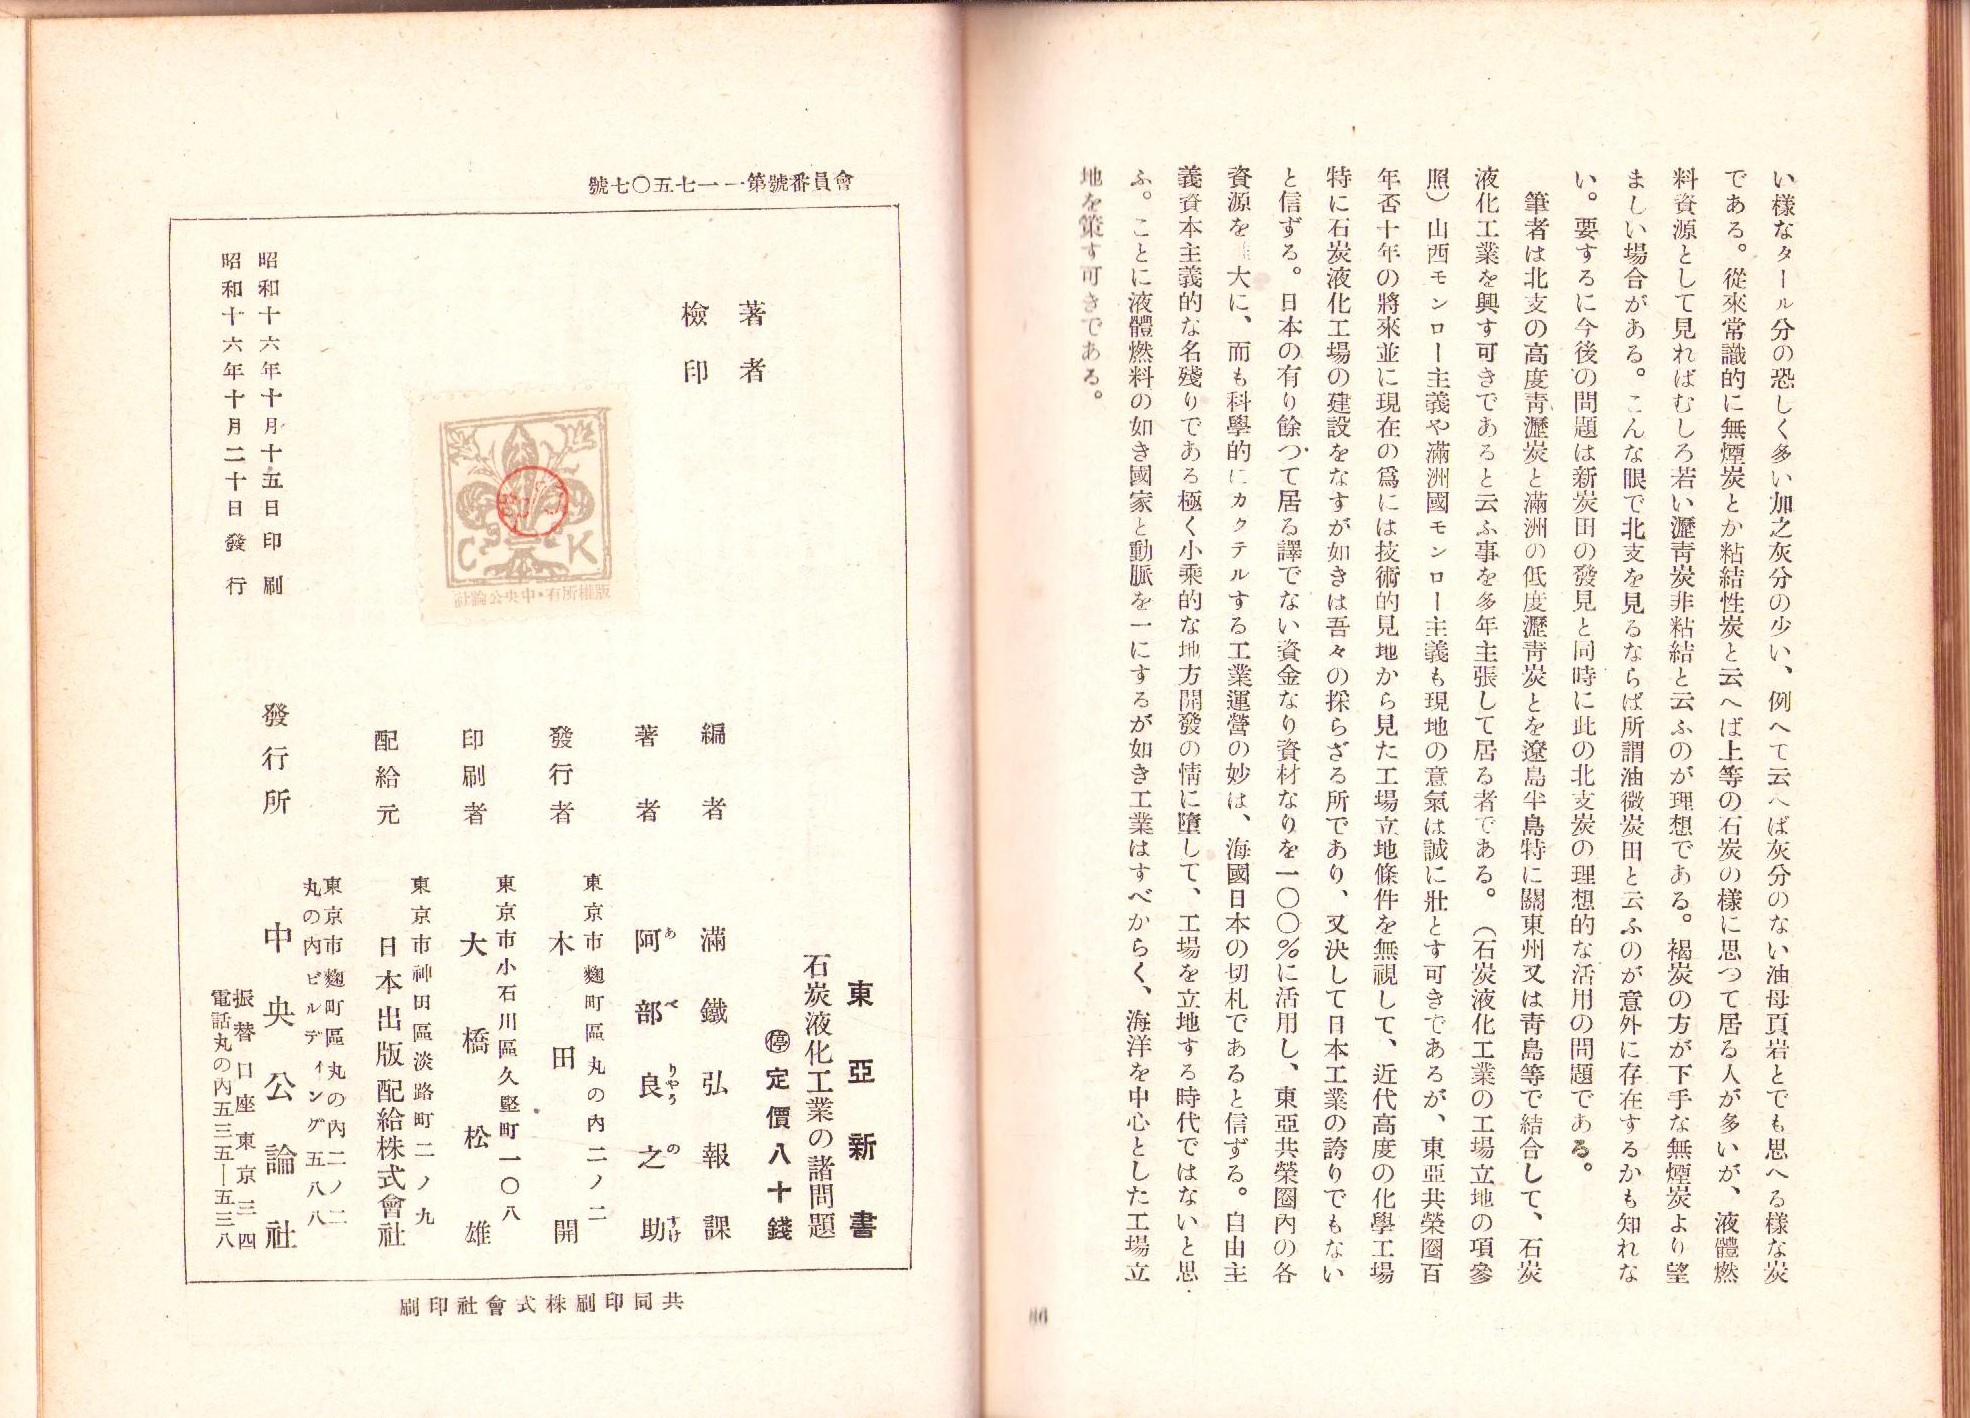 い様なタール分の恐しく多い加之灰分の少い、例へて云へば灰分のない油母頁岩とでも思へる様な炭
である。從來常識的に無煙炭とか粘結性炭と云へば上等の石炭の樣に思つて居る人が多いが、液體燃
料資源として見ればむしろ若い瀝靑炭非粘結と云ふのが理想である。褐炭の方が下手な無煙炭より望
ましい場合がある。こんな眼で北支を見るならば所謂油微炭田と云ふのが意外に存在するかも知れな
い。要するに今後の問題は新炭田の發見と同時に此の北支炭の理想的な活用の問題である。
筆者は北支の高度靑瀝炭と滿洲の低度瀝靑炭とを遼島半島特に關東州又は靑島等で結合して、石炭
液化工業を興す可きであると云ふ事を多年主張して居る者である。（石炭液化工業の工場立地の項參
照）山西モンロー主義や滿洲國モンロー主義も現地の意氣は誠に壯とす可きであるが、東亞共榮圈百
年否十年の將來並に現在の爲には技術的見地から見た工場立地條件を無視して、近代高度の化學工場
特に石炭液化工場の建設をなすが如きは吾々の採らざる所であり、又決して日本工業の誇りでもない
と信ずる。日本の有り餘つて居る譯でない資金なり資材なりを一〇〇％に活用し、東亞共榮圈內の各
資源を大に、而も科學的にカクテルする工業運營の妙は、海國日本の切札であると信ずる。自由主
義資本主義的な名殘りである極く小乘的な地方開發の情に墮して、工場を立地する時代ではないと思
ふ。ことに液體燃料の如き國家と動脈を一にするが如き工業はすべからく、海洋を中心とした工場立
地を策す可きである。
86
會員番號第一一七五〇七號
著者
檢印
C K
版權所有・中央公論社
昭和十六年十月十五日印刷
昭和十六年十月二十日發行
東亞新書
石炭液化工業の諸問題
㊡定價八十錢
編者 滿鐵弘報課
著者 阿部良之助
あべりやうのすけ
東京市麴町區丸の內二ノ二
發行者 木田開
東京市小石川區久堅町一〇八
印刷者 大橋松雄
東京市神田區淡路町二ノ九
配給元 日本出版配給株式會社
東京市麴町區丸の內二ノ二
丸の內ビルディング五八八
發行所 中央公論社
振替口座東京三四
電話丸の內五三五―五三八
共同印刷株式會社印刷